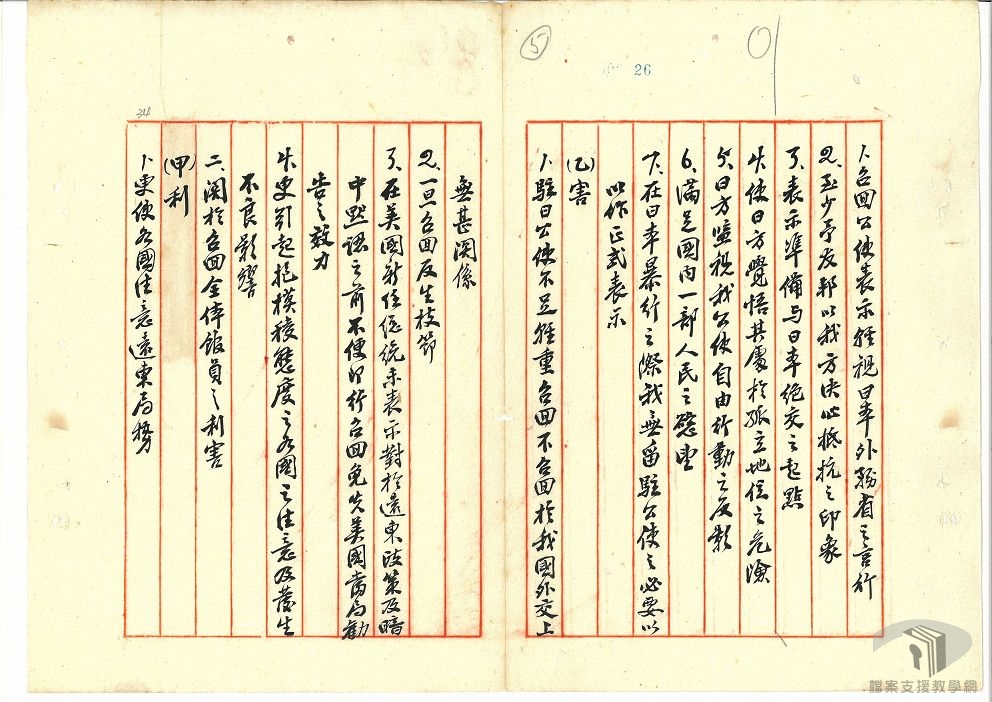 5
26
1、召回公使表示輕視日本外務省之言行
2、至少予友邦以我方決心抵抗之印象
3、表示準備与日本絕交之起點
4、使日方覺悟其處於孤立地位之危險
5、日方監視我公使自由行動之反影
6、滿足國内一部人民之慾望
7、在日本暴行之際我無留駐公使之必要以
以作正式表示
(乙)害
1、駐日公使不足輕重召回不召回於我國外交上
34
無甚関係
2、一旦召回反生枝節
3、在美國新任総統未表示對於遠東政策及暗
中默認之前不便即行召回免失美國當局勸
告之效力
4、更引起抱模稜態度之各國之注意及發生
不良影響
二、関於召回全体館員之利害
(甲)利
1、更使各國注意遠東局勢
檔案支援教學網